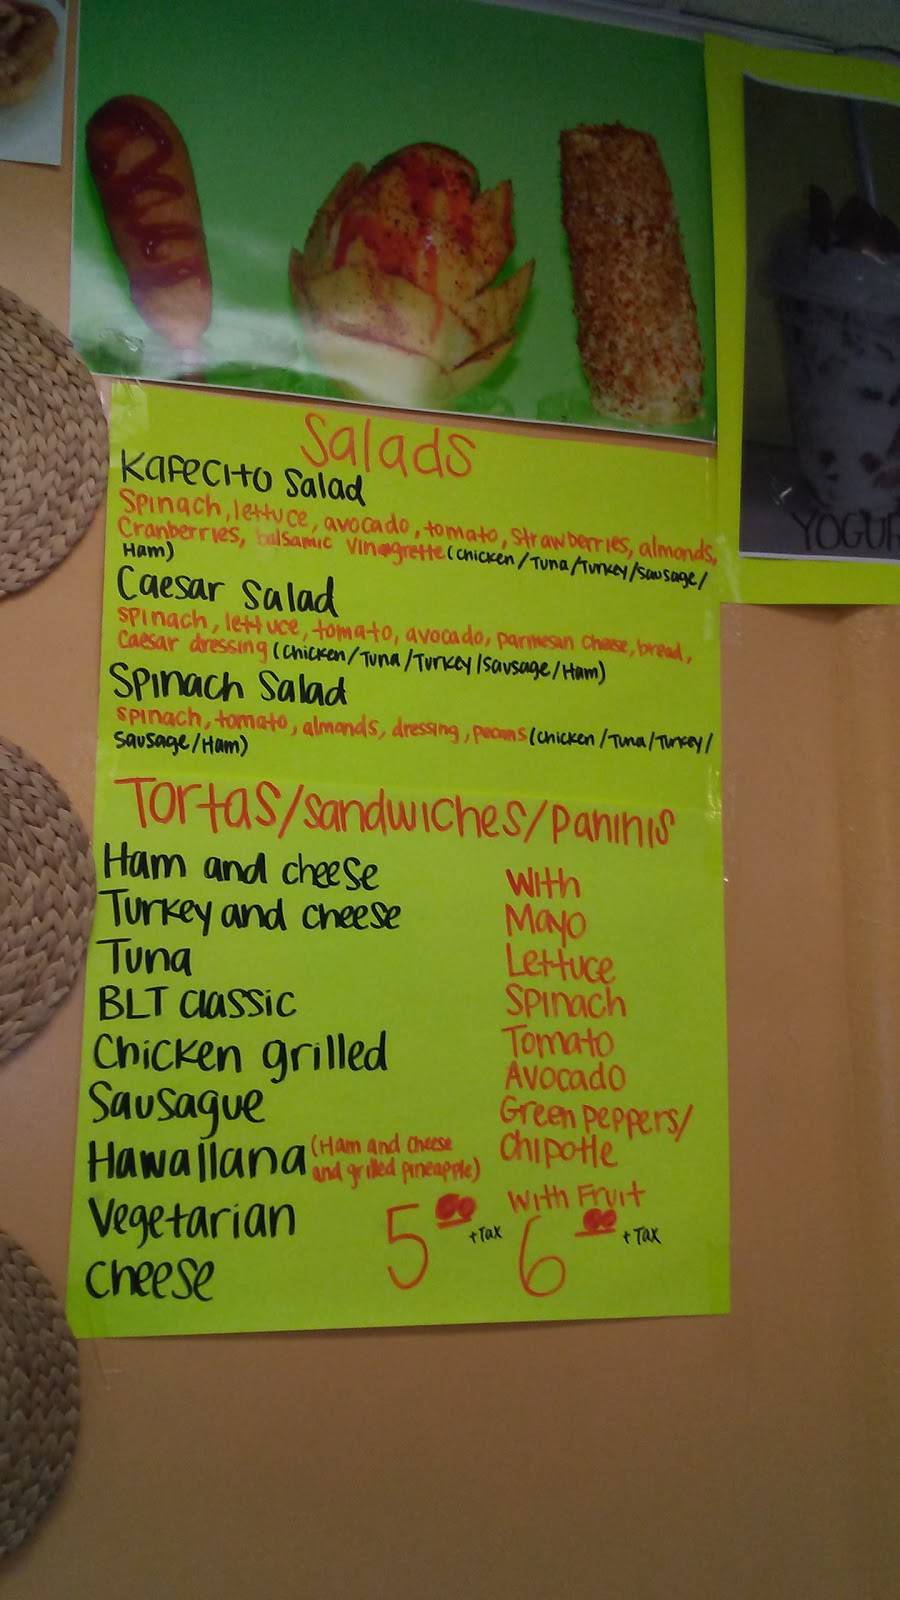 Salads
Kafecito Salad
Spinach, lettuce, avocado, tomato, strawberries, almonds,
Cranberries, balsamic vinagrette (chicken/Tuna/Turkey/sausage/
Ham)
Caesar Salad
spinach, lettuce, tomato, avocado, parmesan cheese, bread,
Caesar dressing (chicken/Tuna/Turkey/sausage/Ham)
Spinach Salad
spinach, tomato, almonds, dressing, pecans (chicken/Tuna/Turkey/
Sausage/Ham)
Tortas/sandwiches/paninis
Ham and cheese
Turkey and cheese
Tuna
BLT classic
Chicken grilled
Sausague
Hawaiiana (Ham and cheese
and grilled pineapple)
Vegetarian
cheese
With
Mayo
Lettuce
Spinach
Tomato
Avocado
Green peppers/
chipotle
5.00 +Tax
With Fruit
6.00 +Tax